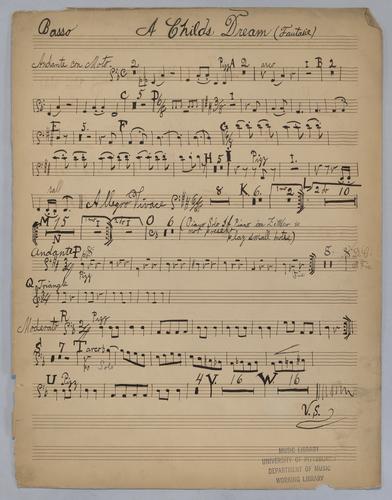 Basso A Childs Dream (Fantasie)
Andante con Moto 2 Pizz A 2 arco 1 B 2
C 5 D 1
E 5. F G
H 5 I Pizz 1.
rall Allegro Vivace 8 K 6. 2 L 2 10
M 15 N O 6 (Piano Solo If Piano or Zither is not present play small notes)
Andante P Pizz 5 Fine
Q Triangle
Moderato R Pizz
S 7 T arco Solo
U Pizz 4 V. 16 W 16
V.S.
MUSIC LIBRARY
UNIVERSITY OF PITTSBURGH
DEPARTMENT OF MUSIC
WORKING LIBRARY